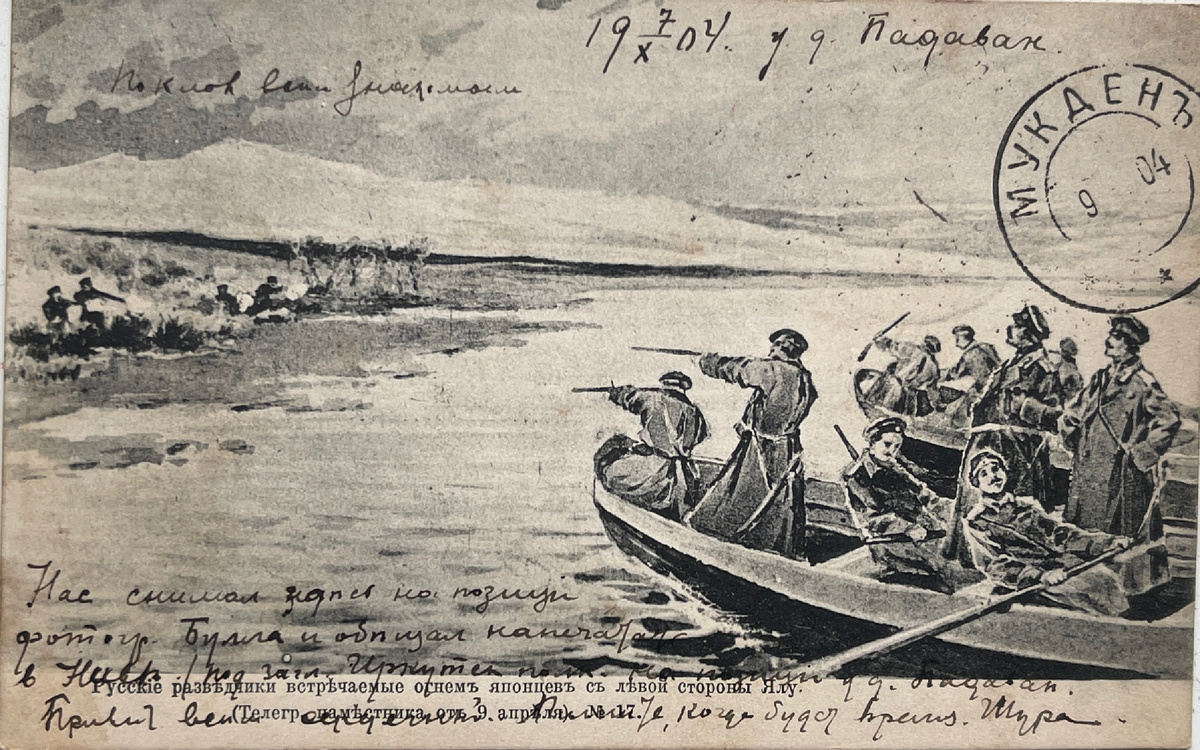 19 7/X 04. у д. Падаван.
Поклон всем знакомым
МУКДЕНЪ
9 04
Нас снимал здесь на позиции
фотогр. Булла и обещал напечатать
в Ниве / под загл. Иркутск полк. на позиции у д. Падаван.
Русскіе развѣдчики встрѣчаемые огнемъ японцевъ съ лѣвой стороны Ялу.
Привет всем Пишите, когда будет время. Шура.
(Телегр. намѣстника отъ 9 апрѣля). № 17.